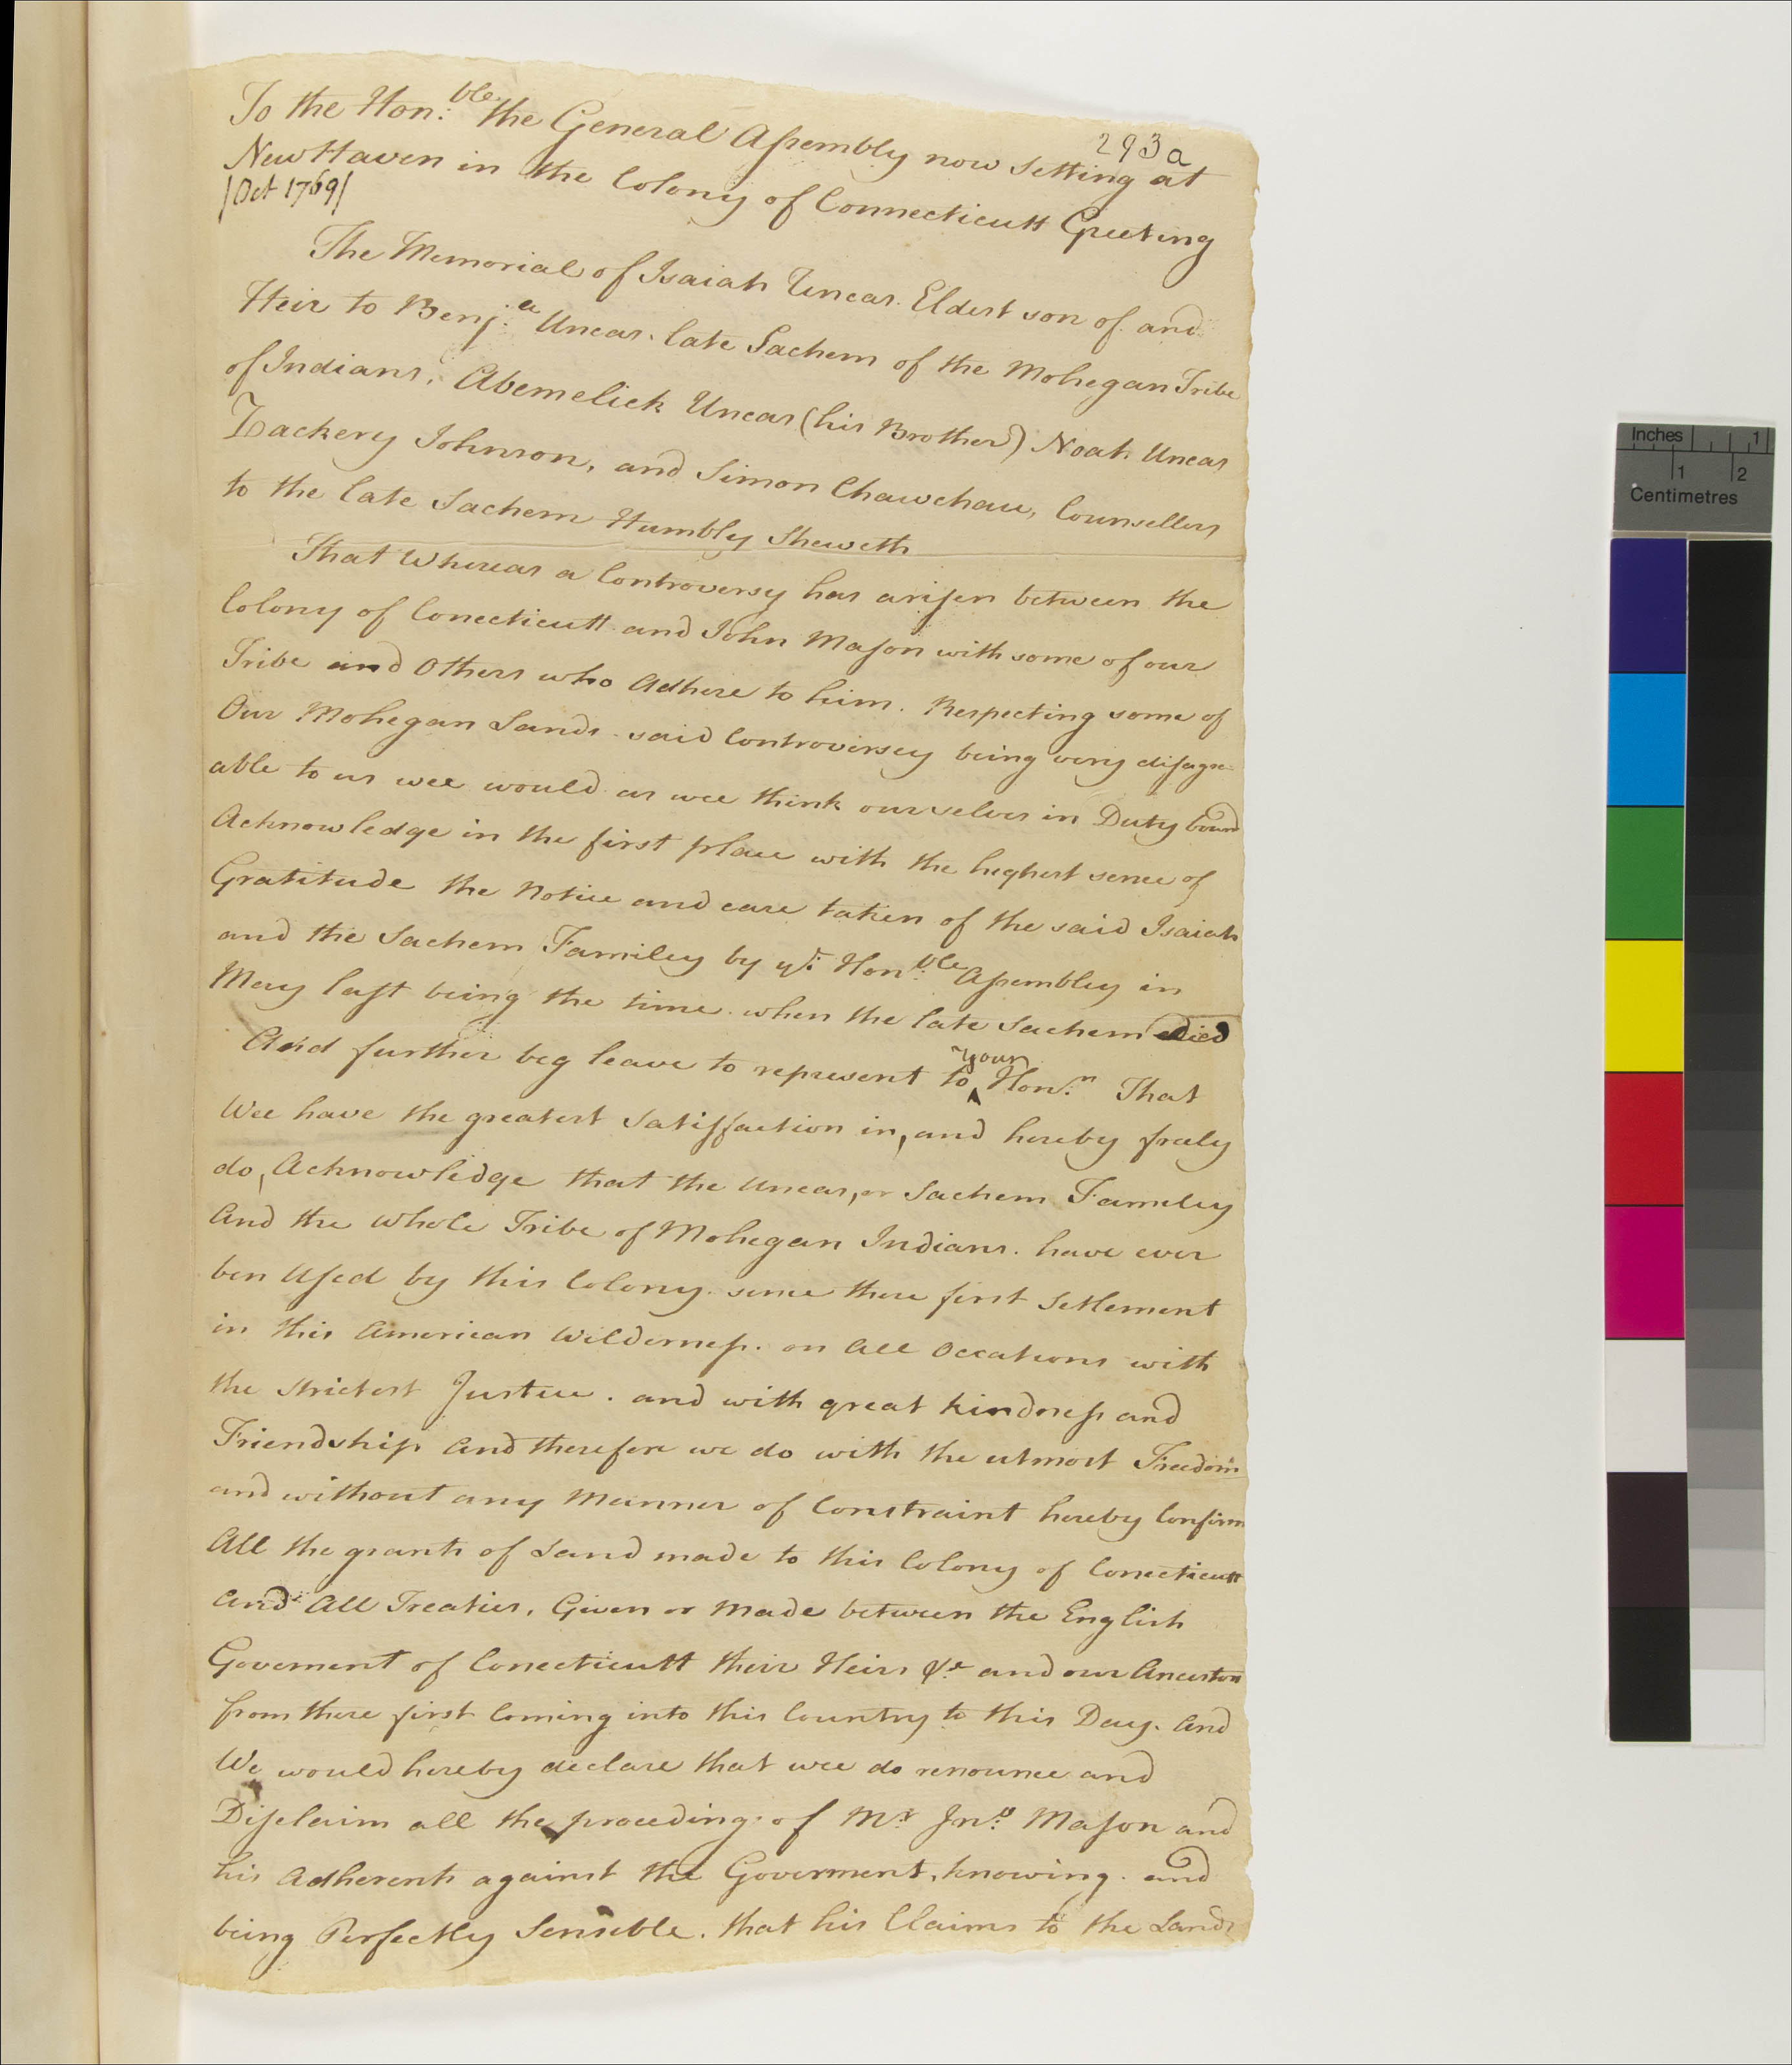 293a
To the Hon:ble the General Assembly now Setting at
New Haven in the Colony of Connecticutt Greeting
[Oct 1769]
The Memorial of Isaiah Uncas. Eldest son of and
Heir to Benj:a Uncas. late Sachem of the Mohegan Tribe
of Indians, Abemelick Uncas (his Brother) Noah Uncas
Zackery Johnson, and Simon Chawchau, Counsellors
to the late Sachem Humbly Sheweth
That Whereas a Controversy has arisen between the
Colony of Conecticutt and John Mason with some of our
Tribe and Others who Adhere to him. Respecting some of
Our Mohegan Lands said Controversey being very disagre
able to us wee would as wee think ourselves in Duty bound
Acknowledge in the first place with the highest sense of
Gratitude the Notice and care taken of the said Isaiah
and the Sachem Familey by yr: Hon:ble Assembley in
May last being the time when the late Sachem died
And further beg leave to represent to your Hon:rs That
Wee have the greatest Satisfaction in, and hereby freely
do, Acknowledge that the Uncas, or Sachem Familey
And the Whole Tribe of Mohegan Indians. have ever
ben Used by this Colony since there first Setlement
in this American Wilderness. on All Occations with
the Strictest Justice. and with great kindness and
Friendship And therefore we do with the utmost Freedom
and without any Manner of Constraint hereby Confirm
All the grants of Land made to this Colony of Conecticutt
And All Treaties, Given or Made between the English
Goverment of Conecticutt their Heirs &c and our Ancestors
from there first Coming into this Country to this Day. And
We would hereby declare that wee do renounce and
Disclaim all the proceding of Mr Jno: Mason and
his Adherents against the Goverment, knowing and
being Perfectly Sensible. that his Claims to the Lands
Inches 1
1 2
Centimetres